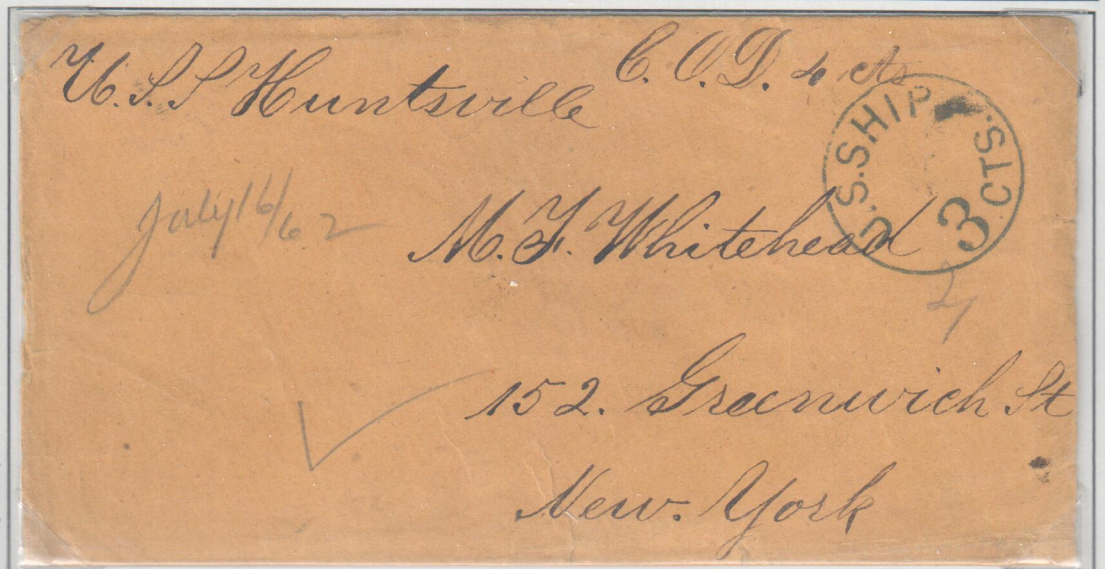 U.S.S Huntsville C.O.D. 4 cts
U.S. SHIP 3 CTS.
July 16/62
M. F. Whitehead
152. Greenwich St
New. York